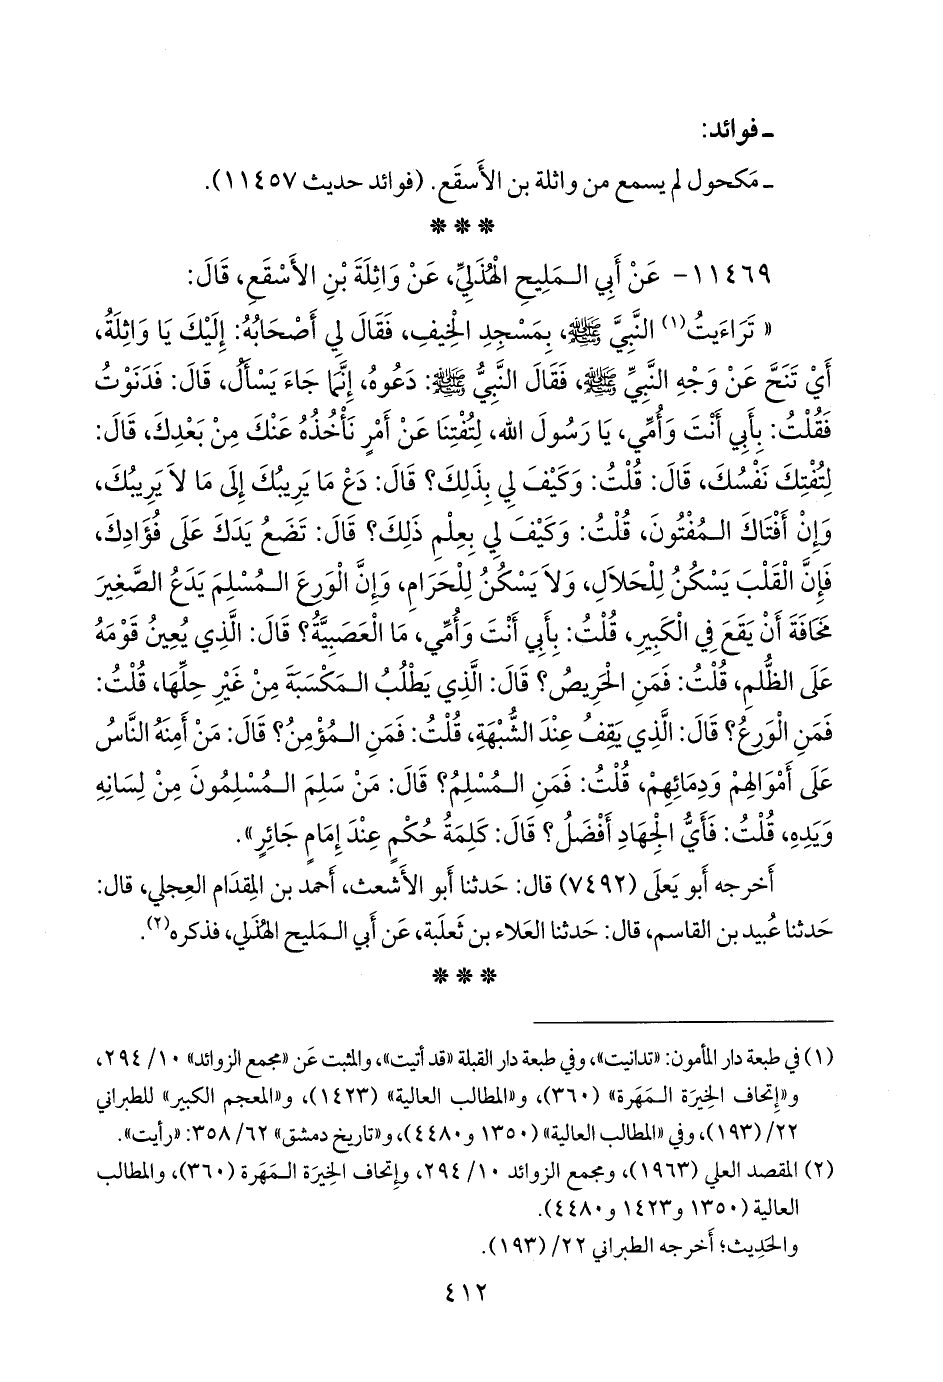 ـ فوائد:
ـ مَكحول لم يسمع من واثلة بن الأَسقَع. (فوائد حديث ١١٤٥٧).
* * *
١١٤٦٩- عَنْ أَبِي الـمَلِيحِ الْهُذَلِيِّ، عَنْ وَاثِلَةَ بْنِ الأَسْقَعِ، قَالَ:
«تَرَاءَيتُ(١) النَّبِيَّ ﷺ، بِمَسْجِدِ الْخِيفِ، فَقَالَ لِي أَصْحَابُهُ: إِلَيْكَ يَا وَاثِلَةُ،
أَيْ تَنَحَّ عَنْ وَجْهِ النَّبِيِّ ﷺ، فَقَالَ النَّبِيُّ ﷺ: دَعُوهُ، إِنَّمَا جَاءَ يَسْأَلُ، قَالَ: فَدَنَوْتُ
فَقُلْتُ: بِأَبِي أَنْتَ وَأُمِّي، يَا رَسُولَ الله، لِتُفْتِنَا عَنْ أَمْرٍ نَأْخُذُهُ عَنْكَ مِنْ بَعْدِكَ، قَالَ:
لِتُفْتِكَ نَفْسُكَ، قَالَ: قُلْتُ: وَكَيْفَ لِي بِذَلِكَ؟ قَالَ: دَعْ مَا يَرِيبُكَ إِلَى مَا لاَ يَرِيبُكَ،
وَإِنْ أَفْتَاكَ الـمُفْتُونَ، قُلْتُ: وَكَيْفَ لِي بِعِلْمِ ذَلِكَ؟ قَالَ: تَضَعُ يَدَكَ عَلَى فُؤَادِكَ،
فَإِنَّ الْقَلْبَ يَسْكُنُ لِلْحَلاَلِ، وَلاَ يَسْكُنُ لِلْحَرَامِ، وَإِنَّ الْوَرِعَ الـمُسْلِمَ يَدَعُ الصَّغِيرَ
مَخَافَةَ أَنْ يَقَعَ فِي الْكَبِيرِ، قُلْتُ: بِأَبِي أَنْتَ وَأُمِّي، مَا الْعَصَبِيَّةُ؟ قَالَ: الَّذِي يُعِينُ قَوْمَهُ
عَلَى الظُّلمِ، قُلْتُ: فَمَنِ الْحَرِيصُ؟ قَالَ: الَّذِي يَطْلُبُ الـمَكْسَبَةَ مِنْ غَيْرِ حِلِّهَا، قُلْتُ:
فَمَنِ الْوَرِعُ؟ قَالَ: الَّذِي يَقِفُ عِنْدَ الشُّبْهَةِ، قُلْتُ: فَمَنِ الـمُؤْمِنُ؟ قَالَ: مَنْ أَمِنَهُ النَّاسُ
عَلَى أَمْوَالِهِمْ وَدِمَائِهِمْ، قُلْتُ: فَمَنِ الـمُسْلِمُ؟ قَالَ: مَنْ سَلِمَ الـمُسْلِمُونَ مِنْ لِسَانِهِ
وَيَدِهِ، قُلْتُ: فَأَيُّ الْجِهَادِ أَفْضَلُ؟ قَالَ: كَلِمَةُ حُكْمٍ عِنْدَ إِمَامٍ جَائِرٍ».
أَخرجه أَبو يَعلَى (٧٤٩٢) قال: حَدثنا أَبو الأَشعث، أَحمد بن المِقدَام العِجلي، قال:
حَدثنا عُبيد بن القاسم، قال: حَدثنا العَلاء بن ثَعلبة، عَن أَبي الـمَليح الهُذَلي، فذكره(٢).
* * *
(١) في طبعة دار المأمون: «تدانيت»، وفي طبعة دار القبلة «قد أتيت»، والمثبت عَن «مجمع الزوائد» ١٠/ ٢٩٤،
و«إتحاف الخِيرَة الـمَهَرة» (٣٦٠)، و«المطالب العالية» (١٤٢٣)، و«المعجم الكبير» للطبراني
٢٢/ (١٩٣)، وفي «المطالب العالية» (١٣٥٠ و٤٤٨٠)، و«تاريخ دمشق» ٦٢/ ٣٥٨: «رأيت».
(٢) المقصد العلي (١٩٦٣)، ومجمع الزوائد ١٠/ ٢٩٤، وإتحاف الخِيرَة الـمَهَرة (٣٦٠)، والمطالب
العالية (١٣٥٠ و١٤٢٣ و٤٤٨٠).
والحَدِيث؛ أَخرجه الطبراني ٢٢/ (١٩٣).
٤١٢